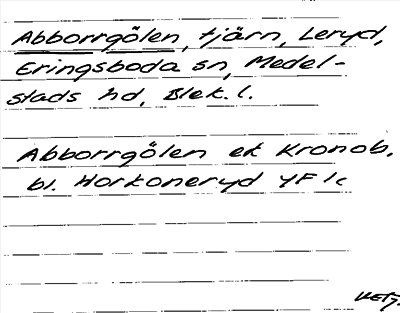 Abborrgölen, tjärn, Leryd,
Eringsboda sn, Medel-
stads hd, Blek. l.
Abborrgölen ek Kronob.
bl. Horkoneryd YF 1c